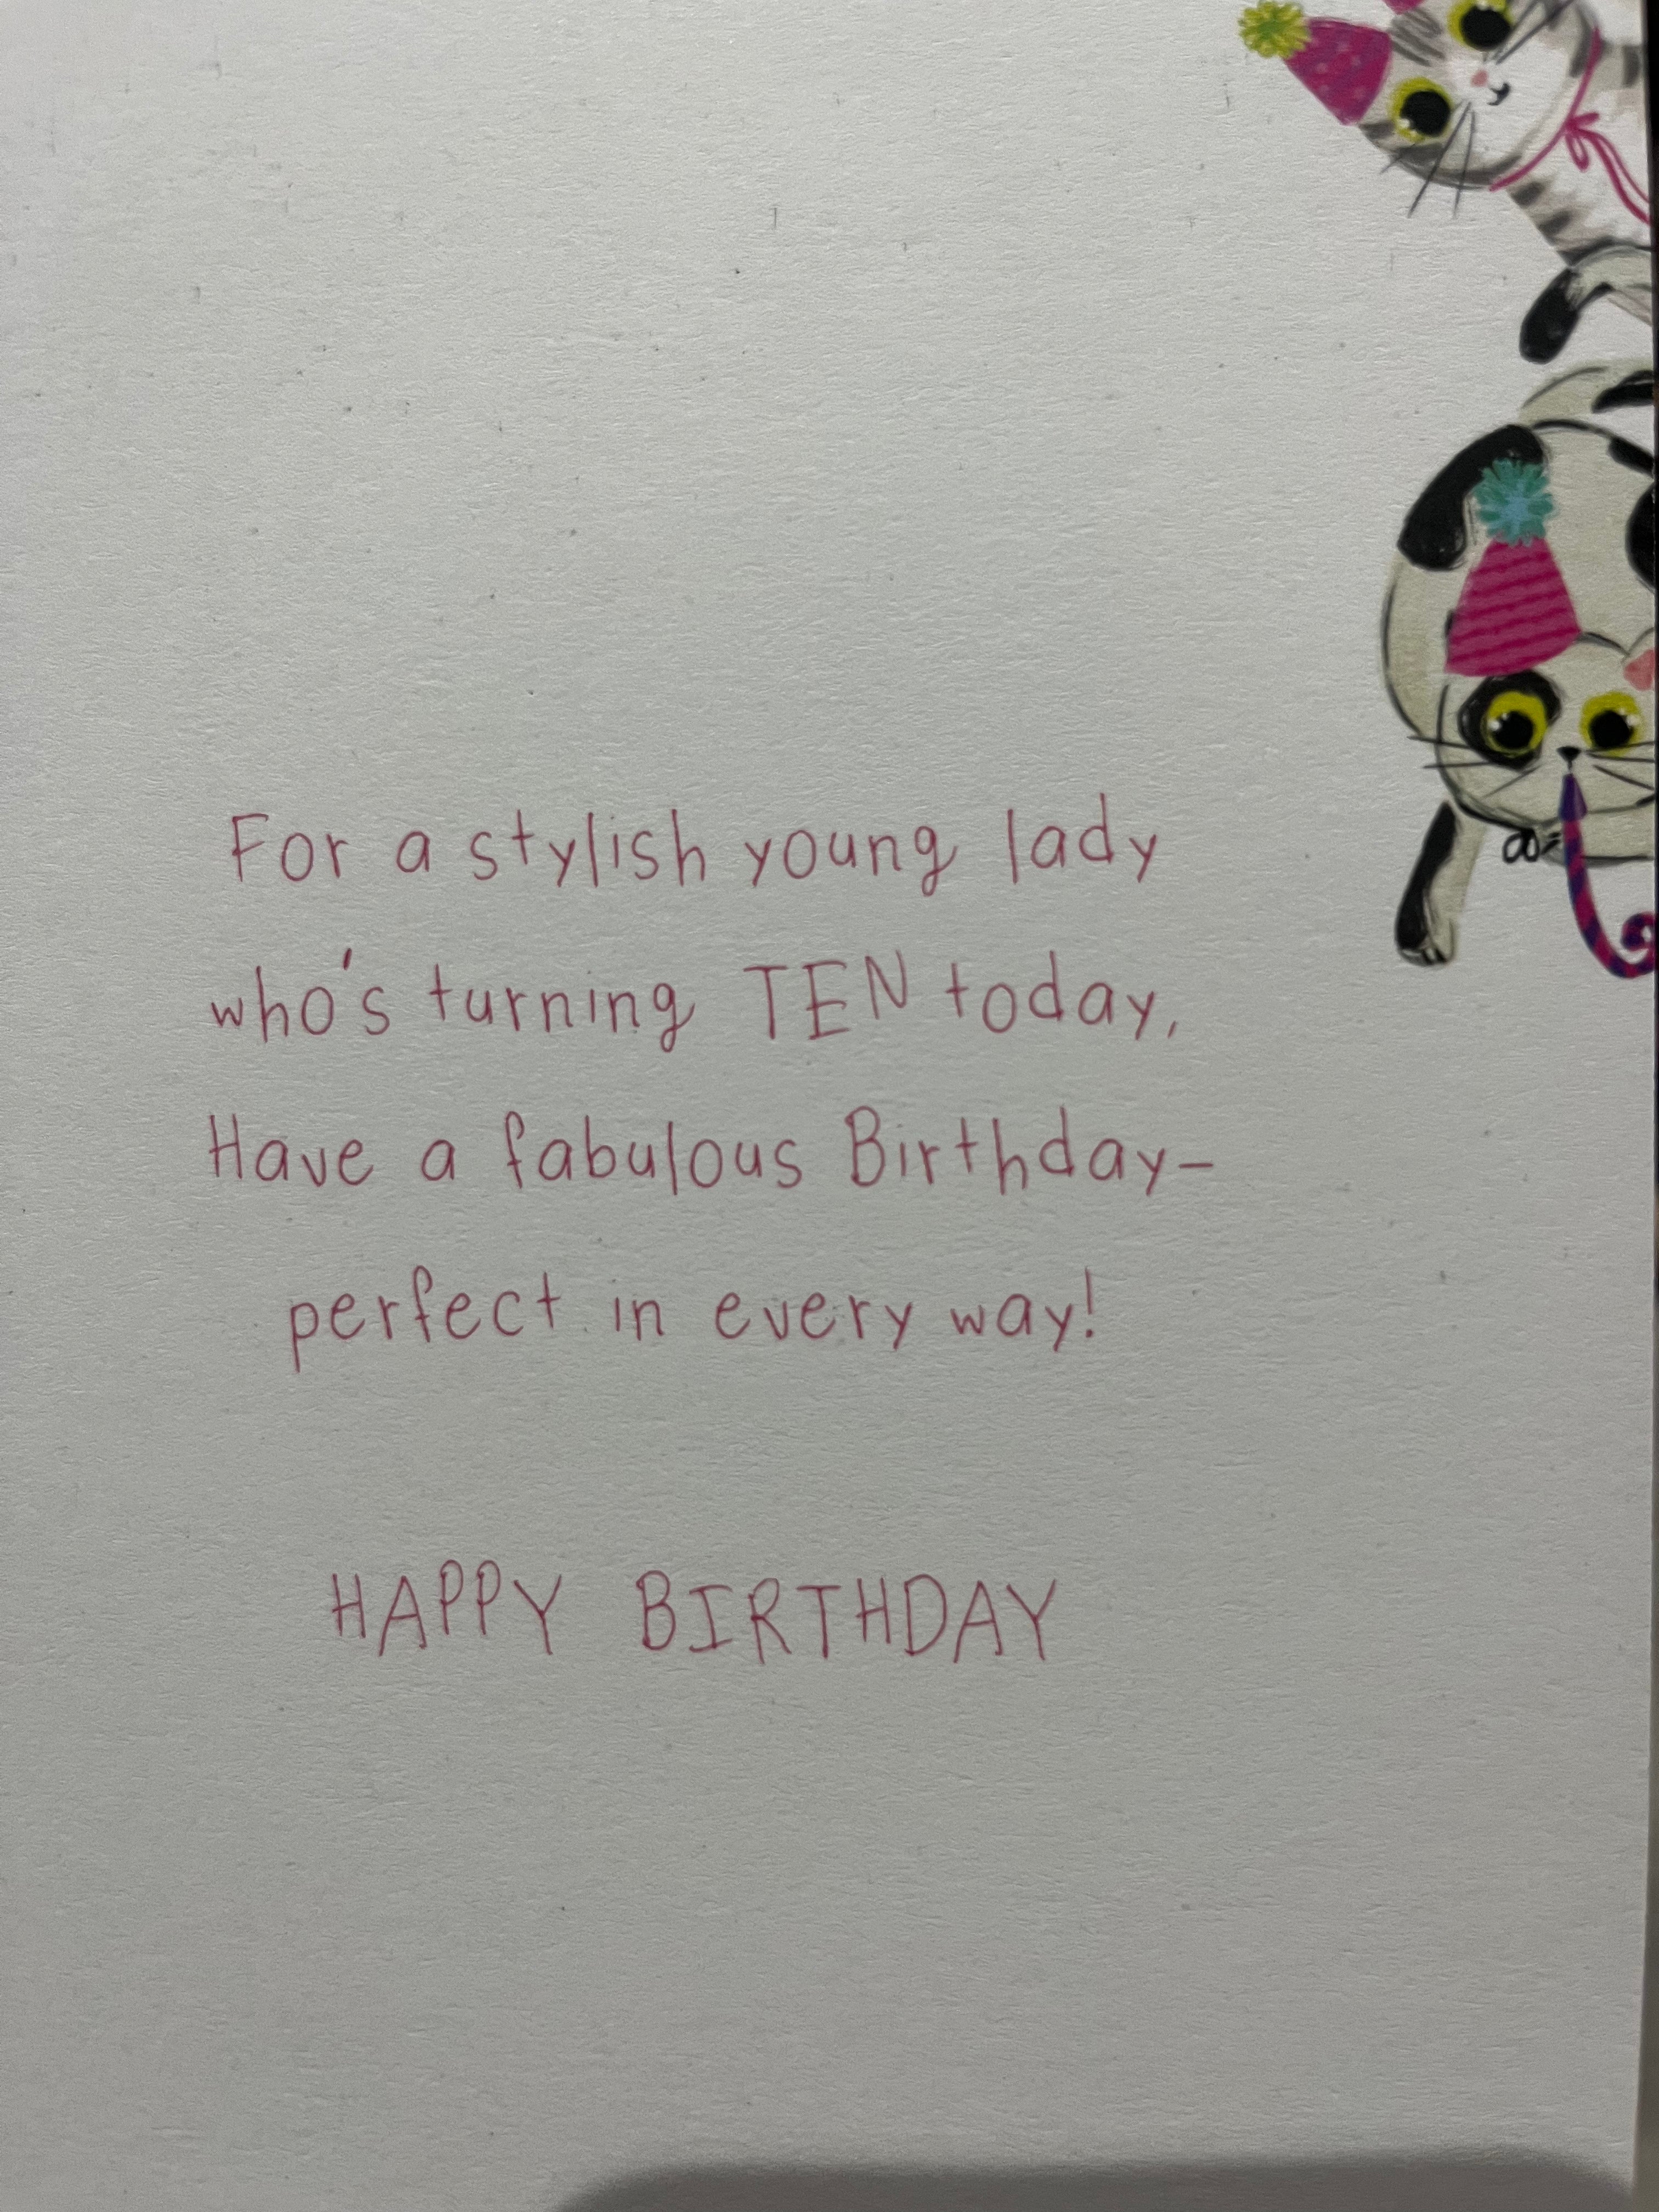 For a stylish young lady
who's turning TEN today,
Have a fabulous Birthday–
perfect in every way!
HAPPY BIRTHDAY